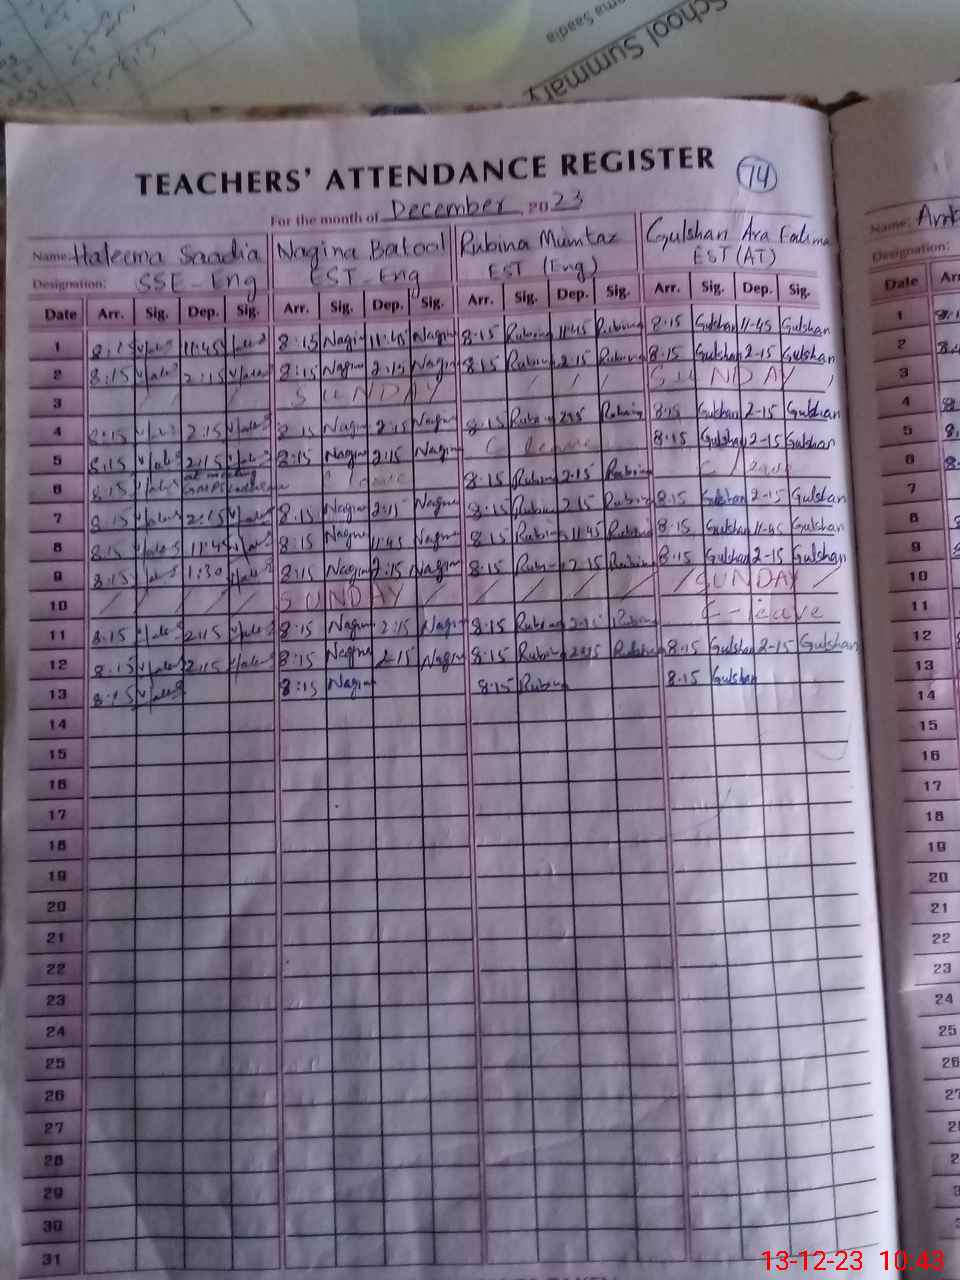 School Summary
ama Saadia
TEACHERS' ATTENDANCE REGISTER 74
For the month of December, 2023
Name: Haleema Saadia Nagina Batool Rubina Mumtaz Gulshan Ara Fatima
Designation: SSE-Eng EST-Eng EST (Eng) EST (AT)
Date Arr. Sig. Dep. Sig. Arr. Sig. Dep. Sig. Arr. Sig. Dep. Sig. Arr. Sig. Dep. Sig.
1 8:15 11:45 8:15 Nagin 11:45 Nagin 8:15 Rubina 11:45 Rubina 8:15 Gulshan 11-45 Gulshan
2 8:15 2:15 8:15 Nagin 2:15 Nagin 8:15 Rubina 2:15 Rubina 8:15 Gulshan 2-15 Gulshan
3 SUNDAY SUNDAY
4 8:15 2:15 8:15 Nagin 2:15 Nagin 8:15 Rubina 2:15 Rubina 8:15 Gulshan 2-15 Gulshan
5 8:15 2:15 8:15 Nagin 2:15 Nagin C leave 8:15 Gulshan 2-15 Gulshan
6 8:15 C leave 8:15 Rubina 2:15 Rubina C leave
7 8:15 2:15 8:15 Nagin 2:15 Nagin 8:15 Rubina 2:15 Rubina 8:15 Gulshan 2-15 Gulshan
8 8:15 11:45 8:15 Nagin 11:45 Nagin 8:15 Rubina 11:45 Rubina 8:15 Gulshan 11-45 Gulshan
9 8:15 1:30 8:15 Nagin 2:15 Nagin 8:15 Rubina 2-15 Rubina 8:15 Gulshan 2-15 Gulshan
10 SUNDAY SUNDAY
11 8:15 2:15 8:15 Nagin 2:15 Nagin 8:15 Rubina 2:15 Rubina C-leave
12 8:15 2:15 8:15 Nagin 2:15 Nagin 8:15 Rubina 2:15 Rubina 8:15 Gulshan 2-15 Gulshan
13 8:15 8:15 Nagin 8:15 Rubina 8:15 Gulshan
14
15
16
17
18
19
20
21
22
23
24
25
26
27
28
29
30
31
Name:
Designation:
Date
1
2
3
4
5
6
7
8
9
10
11
12
13
14
15
16
17
18
19
20
21
22
23
24
25
26
13-12-23 10:43